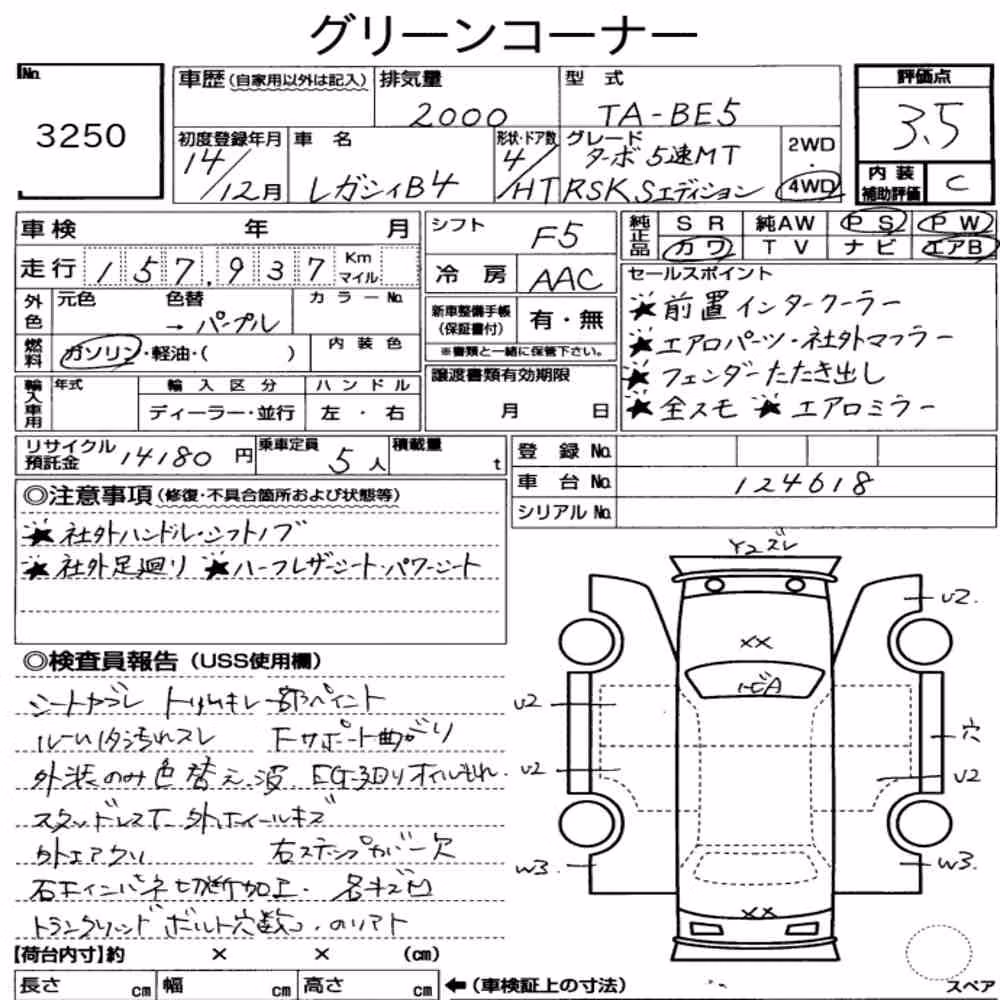 グリーンコーナー
No.
3250
車歴(自家用以外は記入)
排気量
2000
型式
TA-BE5
評価点
3.5
初度登録年月
14/12月
車名
レガシィB4
形状・ドア数
4/HT
グレード
ターボ5速MT
RSK Sエディション
2WD
・
4WD
内装補助評価
C
車検 年 月
シフト
F5
純正品
SR 純AW PS PW
カワ TV ナビ エアB
走行 157,937 Km マイル
冷房 AAC
セールスポイント
★前置インタークーラー
★エアロパーツ・社外マフラー
★フェンダーたたき出し
★全スモ ★エアロミラー
外色
元色 色替
→パープル
カラーNo.
新車整備手帳(保証書付)
有・無
※書類と一緒に保管下さい。
燃料
ガソリン・軽油・( )
内装色
譲渡書類有効期限
月 日
輸入車用
年式
輸入区分
ディーラー・並行
ハンドル
左・右
リサイクル預託金 14180円
乗車定員 5人
積載量 t
登録No.
車台No. 124618
シリアルNo.
◎注意事項(修復・不具合箇所および状態等)
★社外ハンドル・シフトノブ
★社外足廻り ★ハーフレザーシート・パワーシート
◎検査員報告(USS使用欄)
シートヤブレ トリムキレ 一部ペイント
ルーム内汚れスレ Fサポート曲がり
外装のみ色替え、波 EG3Dリオイルもれ.
スタッドレスT 外ホイールキズ
外エアクリ 右ステップカバー欠
右Fインパネ切断加工. 各キズ凹
トランクリッドボルト穴数コ.
Y2ズレ
U2.
××
トビA
U2
穴
U2
U2
W3
W3.
××
【荷台内寸】約 × × (cm)
長さ cm 幅 cm 高さ cm
←(車検証上の寸法)
スペア